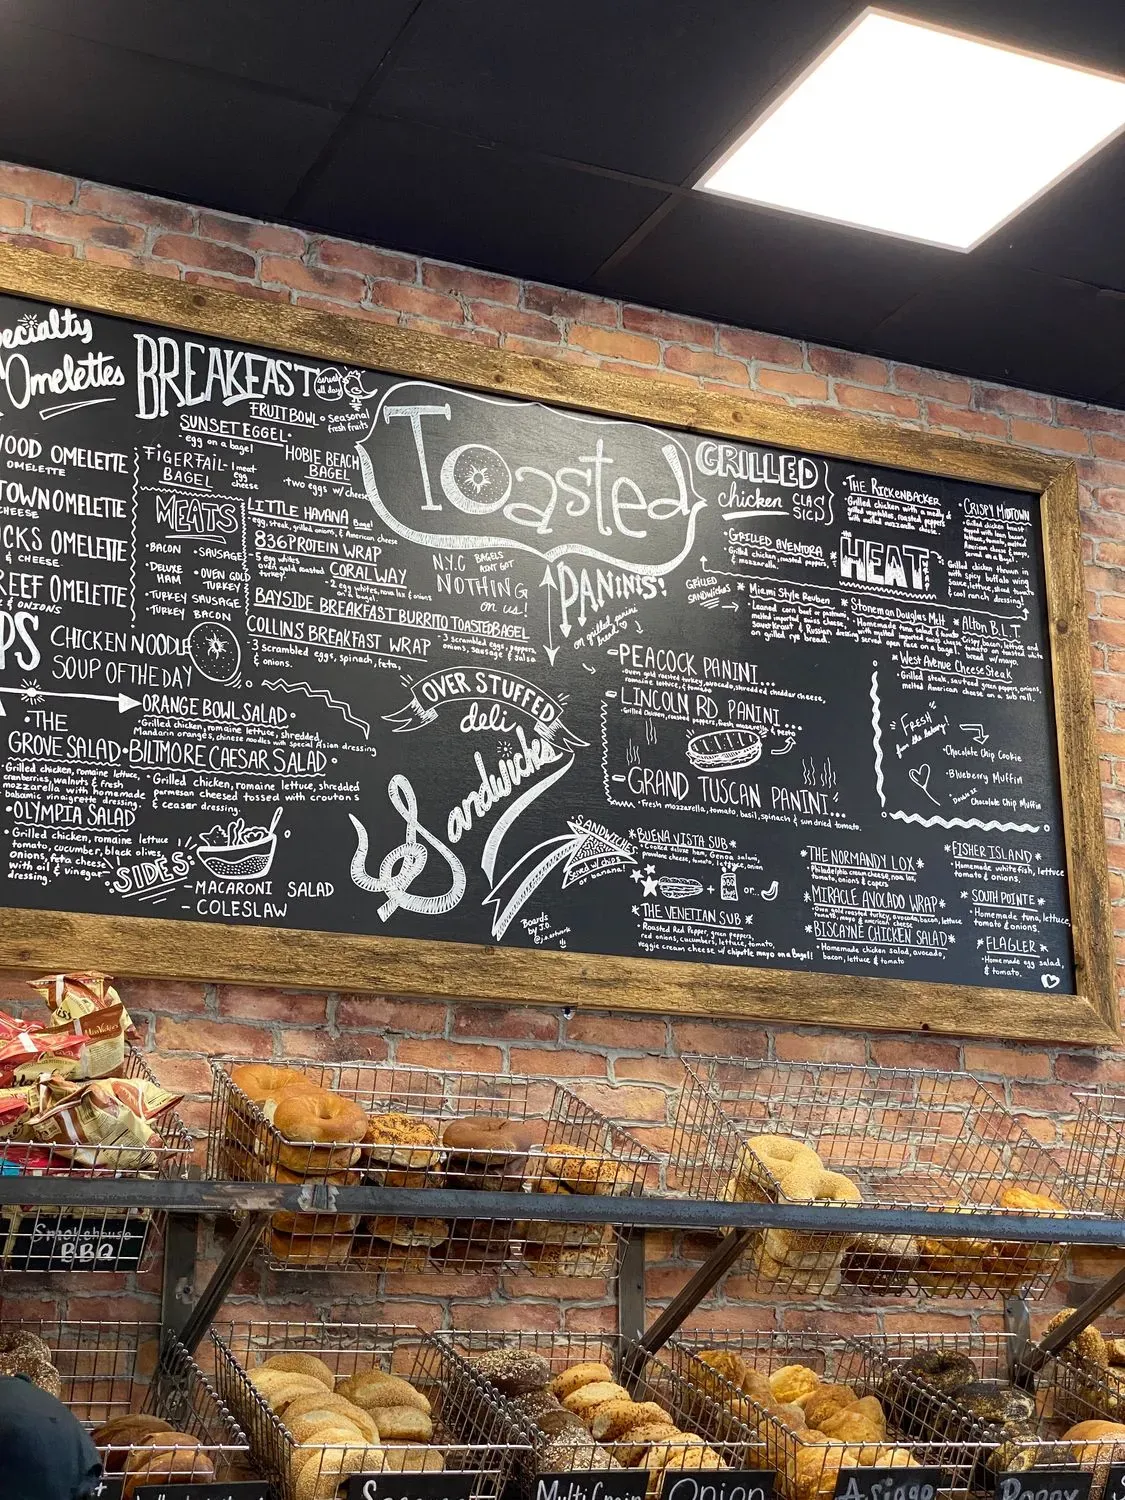 ecialty
Omelettes
OOD OMELETTE
OMELETTE
TOWN OMELETTE
CHEESE
CKS OMELETTE
& CHEESE
REEF OMELETTE
& ONIONS
PS
CHICKEN NOODLE
SOUP OF THE DAY
BREAKFAST
served all day
FRUIT BOWL • seasonal
fresh fruits
SUNSET EGGEL •
• egg on a bagel
FIGERTAIL- 1 meat
BAGEL egg
cheese
HOBIE BEACH
BAGEL
• two eggs w/ cheese
MEATS
• BACON
• DELUXE
HAM
• TURKEY SAUSAGE
• TURKEY BACON
• SAUSAGE
• OVEN GOLD
TURKEY
LITTLE HAVANA Bagel
• egg, steak, grilled onions, & American cheese
836 PROTEIN WRAP
• 5 egg whites
oven gold roasted
turkey
CORAL WAY
BAYSIDE BREAKFAST BURRITO TOASTED BAGEL
COLLINS BREAKFAST WRAP
3 scrambled eggs, spinach, feta,
& onions.
• 3 scrambled eggs, peppers,
onions, sausage & salsa
ORANGE BOWL SALAD •
• Grilled chicken, romaine lettuce, shredded,
Mandarin oranges, chinese noodles with special Asian dressing
• THE
GROVE SALAD •
• Grilled chicken, romaine lettuce,
cranberries, walnuts & fresh
mozzarella with homemade
balsamic vinaigrette dressing.
BILTMORE CAESAR SALAD •
• Grilled chicken, romaine lettuce, shredded
parmesan cheesed tossed with croutons
& ceaser dressing.
• OLYMPIA SALAD
• Grilled chicken, romaine lettuce
tomato, cucumber, black olives,
onions, feta cheese
with oil & vinegar
dressing.
SIDES
- MACARONI SALAD
- COLESLAW
Toasted
N.Y.C BAGELS
AIN'T GOT
NOTHING
on us!
OVER STUFFED
deli
Sandwiches
PANINIS!
on grilled panini
bread
- PEACOCK PANINI...
• Oven gold roasted turkey, avocado, shredded cheddar cheese,
romaine lettuce, & tomato
- LINCOLN RD PANINI...
• Grilled Chicken, roasted peppers, fresh mozzarella
& pesto
- GRAND TUSCAN PANINI
• Fresh mozzarella, tomato, basil, spinach & sun dried tomato.
SANDWICHES
Served w/ chips
or banana!
Boards
by J.O.
GRILLED
chicken CLAS
SICS
• GRILLED AVENTORA
• Grilled chicken, roasted peppers,
& mozzarella.
• THE RICKENBACKER
• Grilled chicken with a medley of
grilled vegetables, roasted peppers
with melted mozzarella cheese.
• CRISPY MIDTOWN
• Grilled chicken breast
topped with lean bacon,
lettuce, tomato, melted
American cheese & mayo.
served on a Bagel.
HEAT
• Grilled chicken thrown in
with spicy buffalo wing
sauce, lettuce, sliced tomato
& cool ranch dressing!
GRILLED
SANDWICHES
* Miami Style Reuben
• Leaned corn beef or pastrami
topped with imported swiss cheese,
sauerkraut & Russian dressing
on grilled rye bread
* Stoneman Douglas Melt
• Homemade tuna salad
with melted imported swiss cheese
served open face on a bagel
* Alton B.L.T.
Crispy bacon, lettuce, and
tomato on toasted white
bread w/ mayo.
* West Avenue Cheese Steak
• Grilled steak, sauteed green peppers, onions,
melted American cheese on a sub roll.
FRESH
from the bakery!
• Chocolate Chip Cookie
• Blueberry Muffin
• Chocolate Chip Muffin
* BUENA VISTA SUB *
• Cooked deluxe ham, Genoa salami,
provolone cheese, tomato, lettuce, onion
BBQ
Chips
or
* THE VENETIAN SUB *
• Roasted Red Pepper, green peppers,
red onions, cucumbers, lettuce, tomato,
veggie cream cheese w/ chipotle mayo on a Bagel!
* THE NORMANDY LOX *
• Philadelphia cream cheese, nova lox,
tomato, onions & capers
MIRACLE AVOCADO WRAP *
• Oven gold roasted turkey, avocado, bacon, lettuce
tomato, mayo & american cheese
* BISCAYNE CHICKEN SALAD *
• Homemade chicken salad, avocado,
bacon, lettuce & tomato
* FISHER ISLAND *
• Homemade whitefish, lettuce
tomato & onions.
* SOUTH POINTE *
• Homemade tuna, lettuce,
tomato & onions.
* FLAGLER *
• Homemade egg salad,
& tomato.
Smokehouse
BBQ
Multi Grain
Onion
Asiago
Poppy